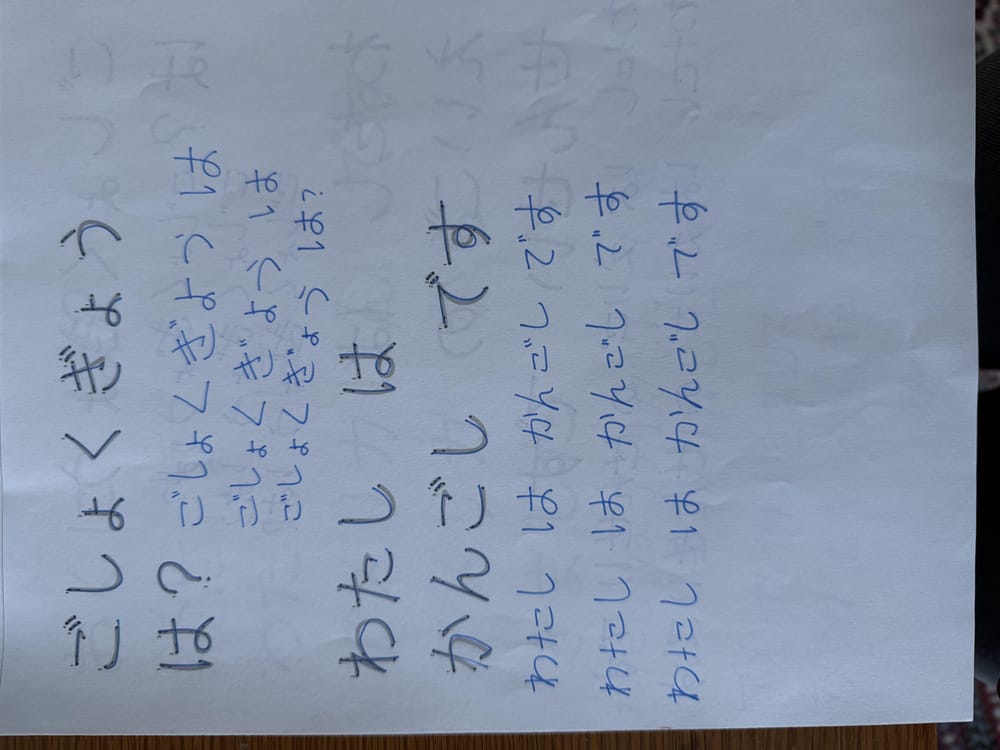 ごしょくぎょう
は？ ごしょくぎょうは
ごしょくぎょうは
ごしょくぎょうは？
わたし は
かんごし です
わたし は かんごし です
わたし は かんごし です
わたし は かんごし です